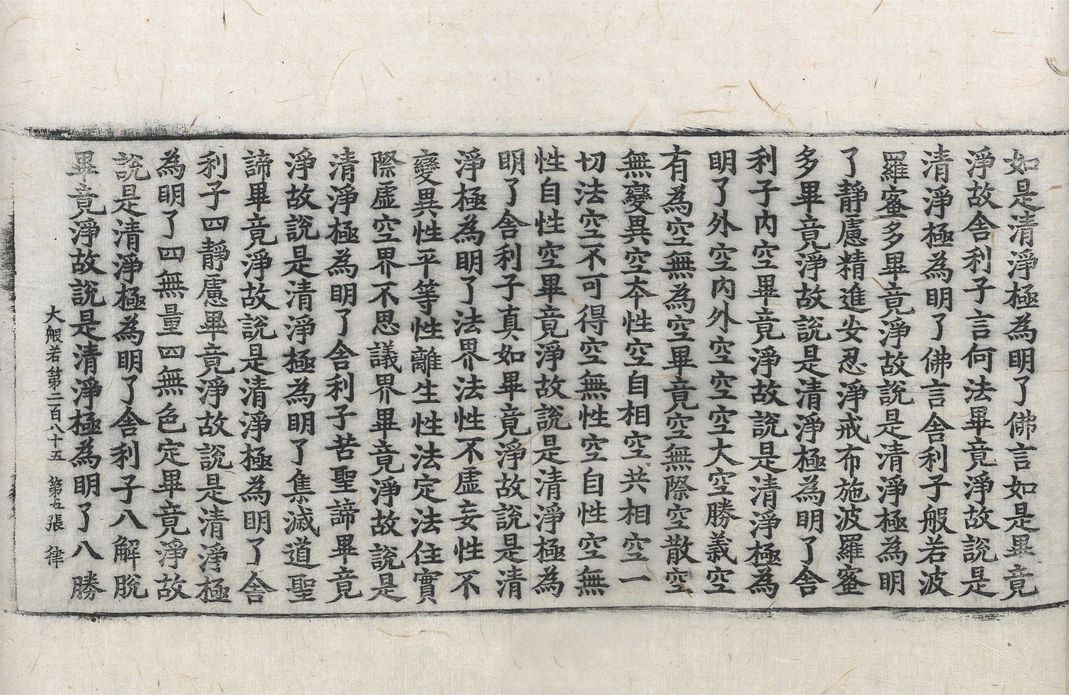 如是清淨極為明了佛言如是畢竟
淨故舍利子言何法畢竟淨故說是
清淨極為明了佛言舍利子般若波
羅蜜多畢竟淨故說是清淨極為明
了靜慮精進安忍淨戒布施波羅蜜
多畢竟淨故說是清淨極為明了舍
利子內空畢竟淨故說是清淨極為
明了外空內外空空空大空勝義空
有為空無為空畢竟空無際空散空
無變異空夲性空自相空共相空一
切法空不可得空無性空自性空無
性自性空畢竟淨故說是清淨極為
明了舍利子真如畢竟淨故說是清
淨極為明了法界法性不虛妄性不
變異性平等性離生性法定法住實
際虛空界不思議界畢竟淨故說是
清淨極為明了舍利子苦聖諦畢竟
淨故說是清淨極為明了集滅道聖
諦畢竟淨故說是清淨極為明了舍
利子四靜慮畢竟淨故說是清淨極
為明了四無量四無色定畢竟淨故
說是清淨極為明了舍利子八解脫
畢竟淨故說是清淨極為明了八勝
大般若第二百八十五 第五張 律